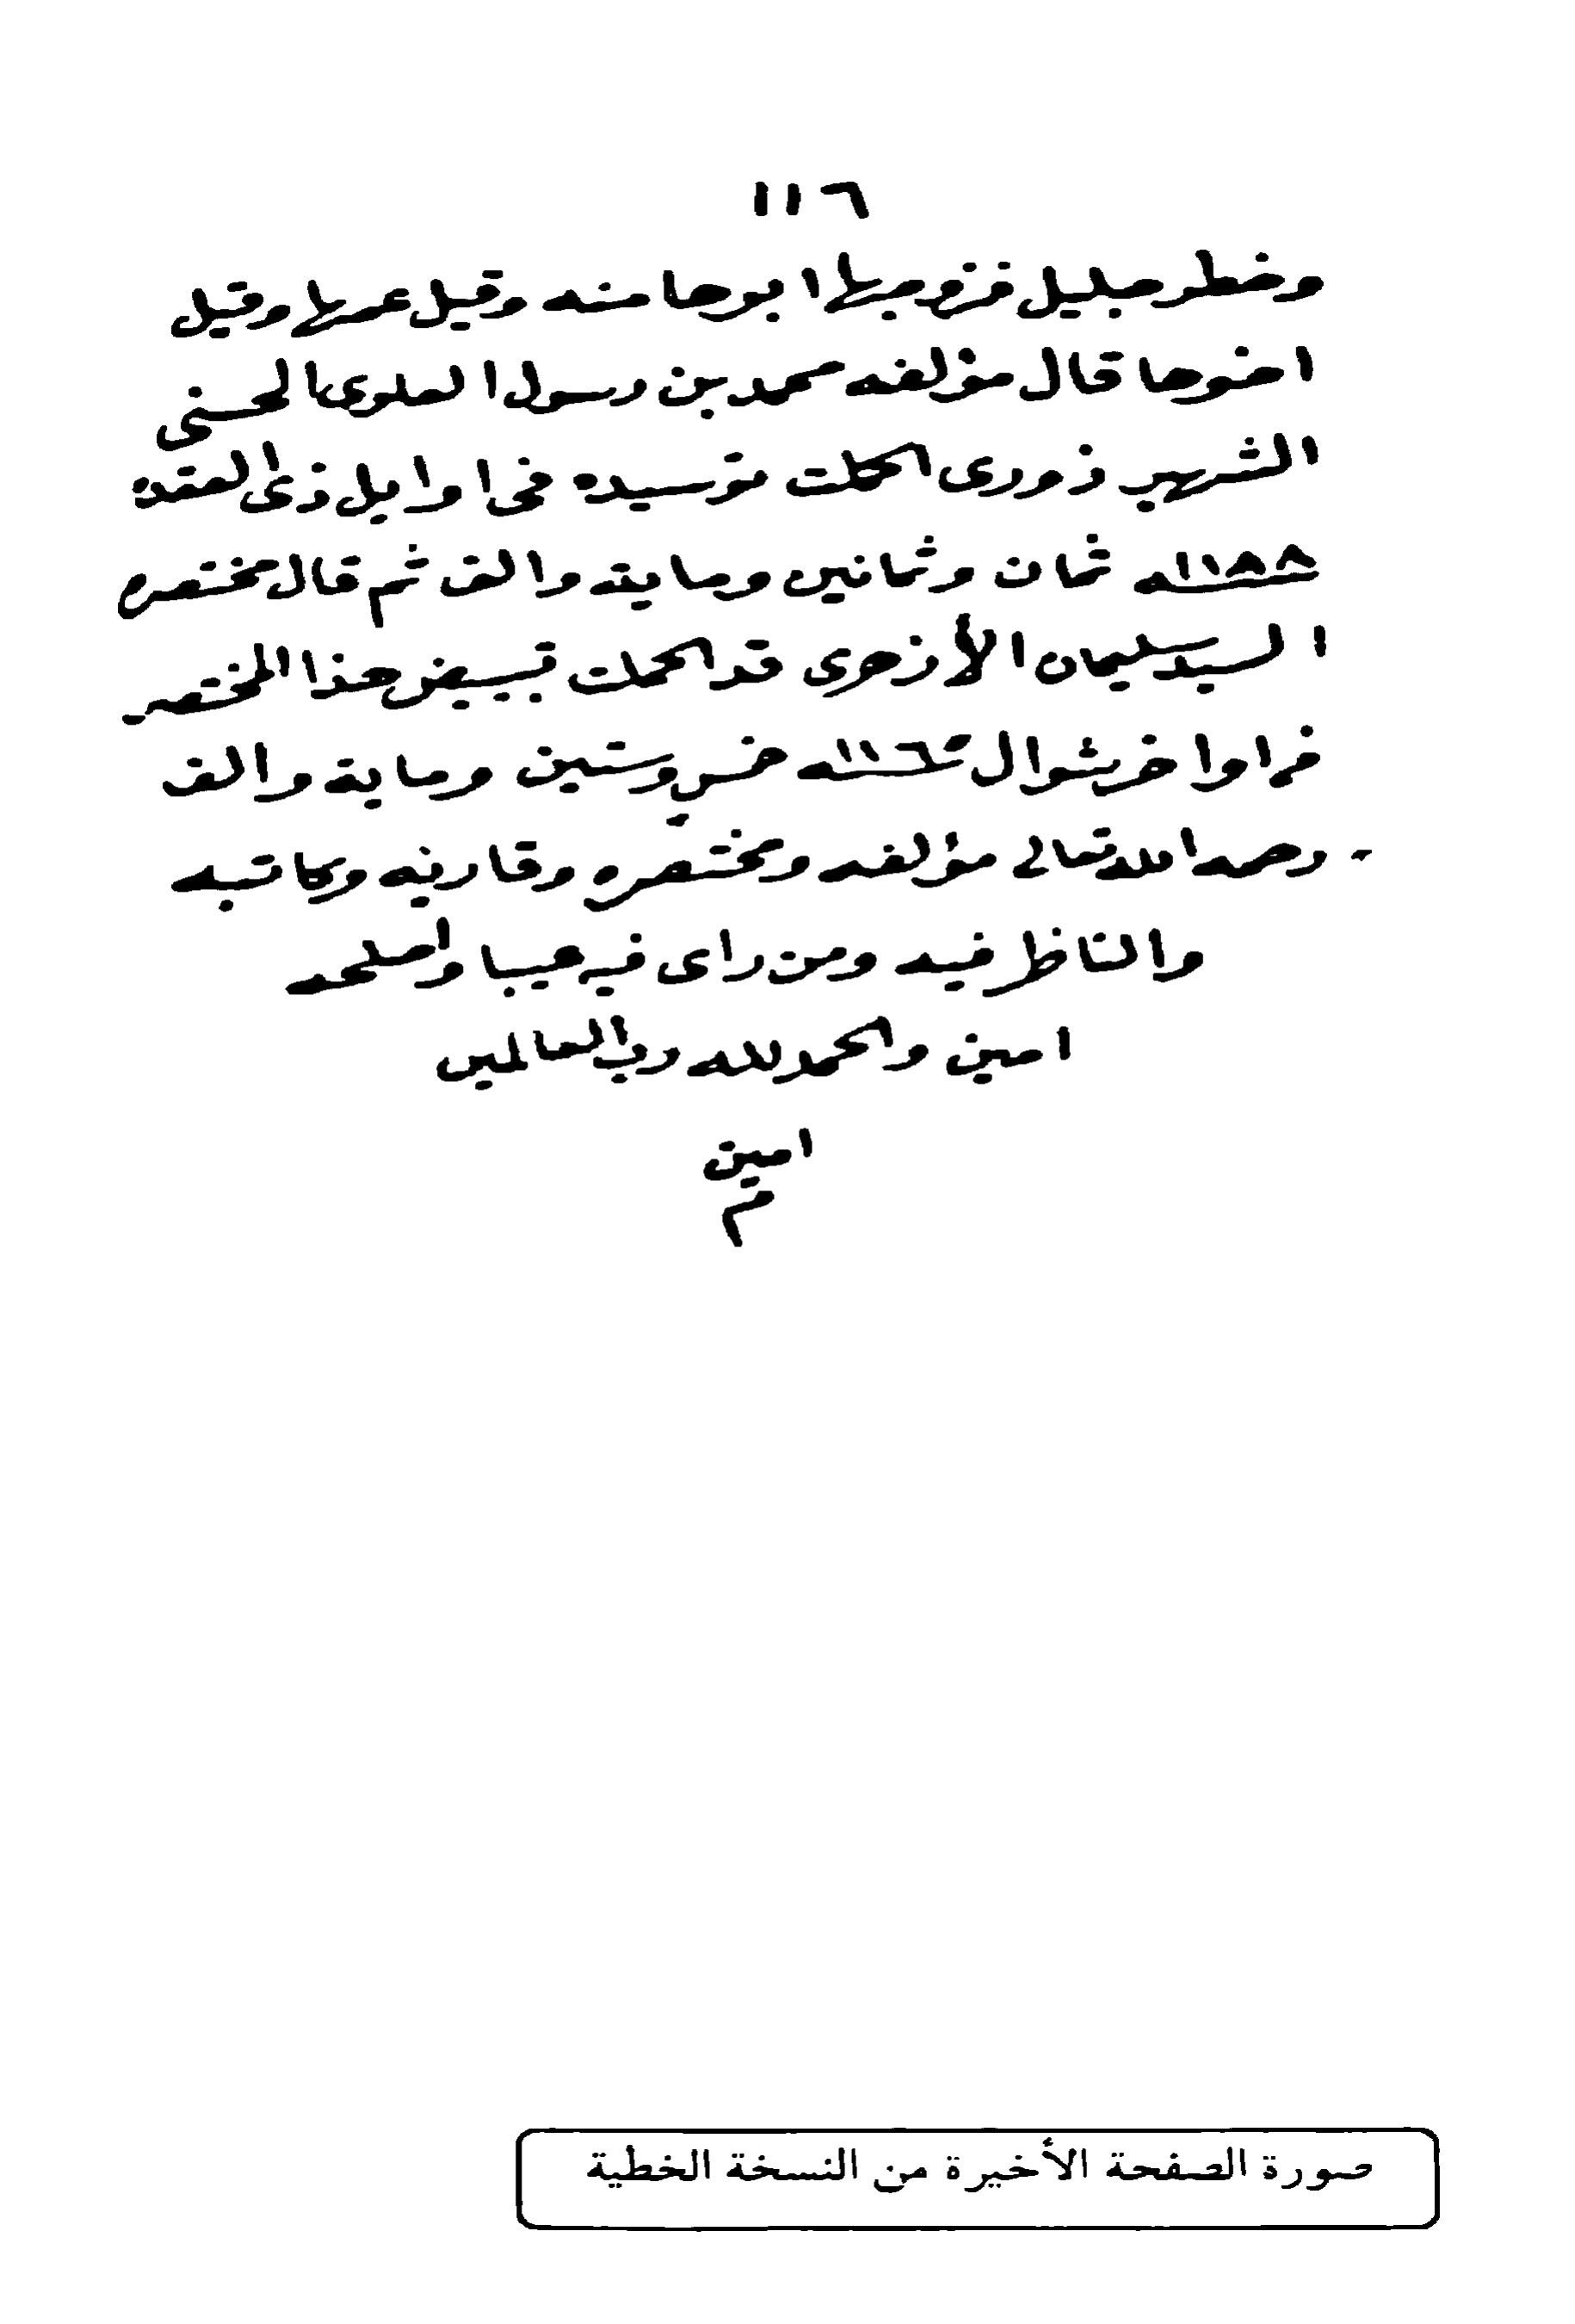 ١١٦
وخطر جليل فزوجها ابوها منه وقيل عمها وقيل
اخوها قال مؤلفه محمد بن رسول العلوى الحسنى
الشهير اكملت تسيده فى اوايل ذى القعدة
١١٨٨ سنه ثمان وثمانين وماية والف ثم قال مختصره
السيد سليمان الأزهرى قد اكملت تبييض هذا المختصر
فى اواخر شوال سنه خمس وستين وماية والف
رحم الله تعالى مؤلفه ومختصره وقاريه وكاتبه
والناظر فيه ومن راى فيه عيبا واصلحه
امين والحمد لله رب العالمين
امين
م
صورة الصفحة الأخيرة من النسخة الخطية